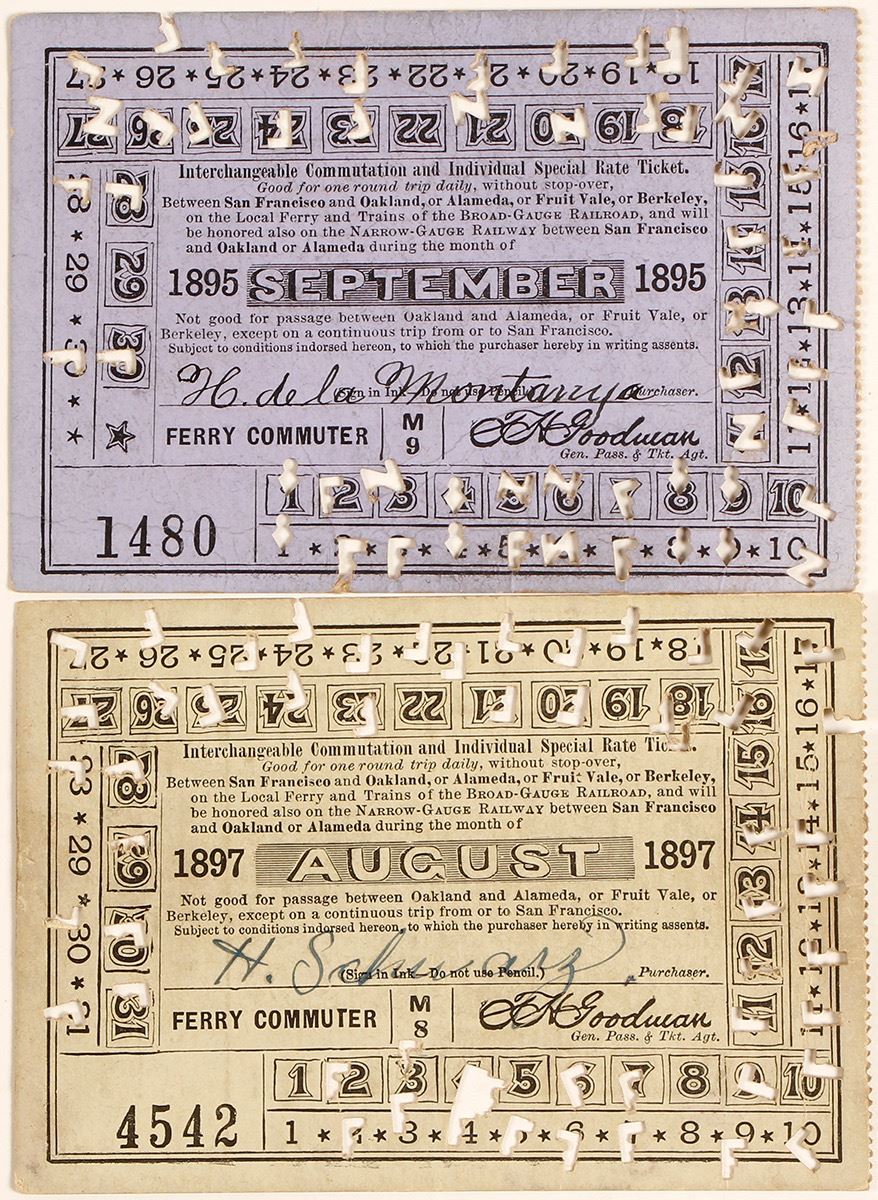 27 ★ 26 ★ 25 ★ 24 ★ 23 ★ 22 ★ 21 ★ 20 ★ 19 ★ 18
27 26 25 24 23 22 21 20 19 18
17 ★ 16 ★ 15 ★ 14 ★ 13 ★ 12 ★ 11
17 16 15 14 13 12 11
28 ★ 29 ★ 30 ★ ★
28 29 30 ★
Interchangeable Commutation and Individual Special Rate Ticket.
Good for one round trip daily, without stop-over,
Between San Francisco and Oakland, or Alameda, or Fruit Vale, or Berkeley,
on the Local Ferry and Trains of the BROAD-GAUGE RAILROAD, and will
be honored also on the NARROW-GAUGE RAILWAY between San Francisco
and Oakland or Alameda during the month of
1895 SEPTEMBER 1895
Not good for passage between Oakland and Alameda, or Fruit Vale, or
Berkeley, except on a continuous trip from or to San Francisco.
Subject to conditions indorsed hereon, to which the purchaser hereby in writing assents.
H. de la Montanya
(Sign in Ink—Do not use Pencil.) Purchaser.
FERRY COMMUTER M 9 T H Goodman
Gen. Pass. & Tkt. Agt.
1 2 3 4 5 6 7 8 9 10
1480
1 ★ 2 ★ 3 ★ 4 ★ 5 ★ 6 ★ 7 ★ 8 ★ 9 ★ 10
27 ★ 26 ★ 25 ★ 24 ★ 23 ★ 22 ★ 21 ★ 20 ★ 19 ★ 18
27 26 25 24 23 22 21 20 19 18
17 ★ 16 ★ 15 ★ 14 ★ 13 ★ 12 ★ 11
17 16 15 14 13 12 11
28 ★ 29 ★ 30 ★ 31
28 29 30 31
Interchangeable Commutation and Individual Special Rate Ticket.
Good for one round trip daily, without stop-over,
Between San Francisco and Oakland, or Alameda, or Fruit Vale, or Berkeley,
on the Local Ferry and Trains of the BROAD-GAUGE RAILROAD, and will
be honored also on the NARROW-GAUGE RAILWAY between San Francisco
and Oakland or Alameda during the month of
1897 AUGUST 1897
Not good for passage between Oakland and Alameda, or Fruit Vale, or
Berkeley, except on a continuous trip from or to San Francisco.
Subject to conditions indorsed hereon, to which the purchaser hereby in writing assents.
H. Schwarz
(Sign in Ink—Do not use Pencil.) Purchaser.
FERRY COMMUTER M 8 T H Goodman
Gen. Pass. & Tkt. Agt.
1 2 3 4 5 6 7 8 9 10
4542
1 ★ 2 ★ 3 ★ 4 ★ 5 ★ 6 ★ 7 ★ 8 ★ 9 ★ 10